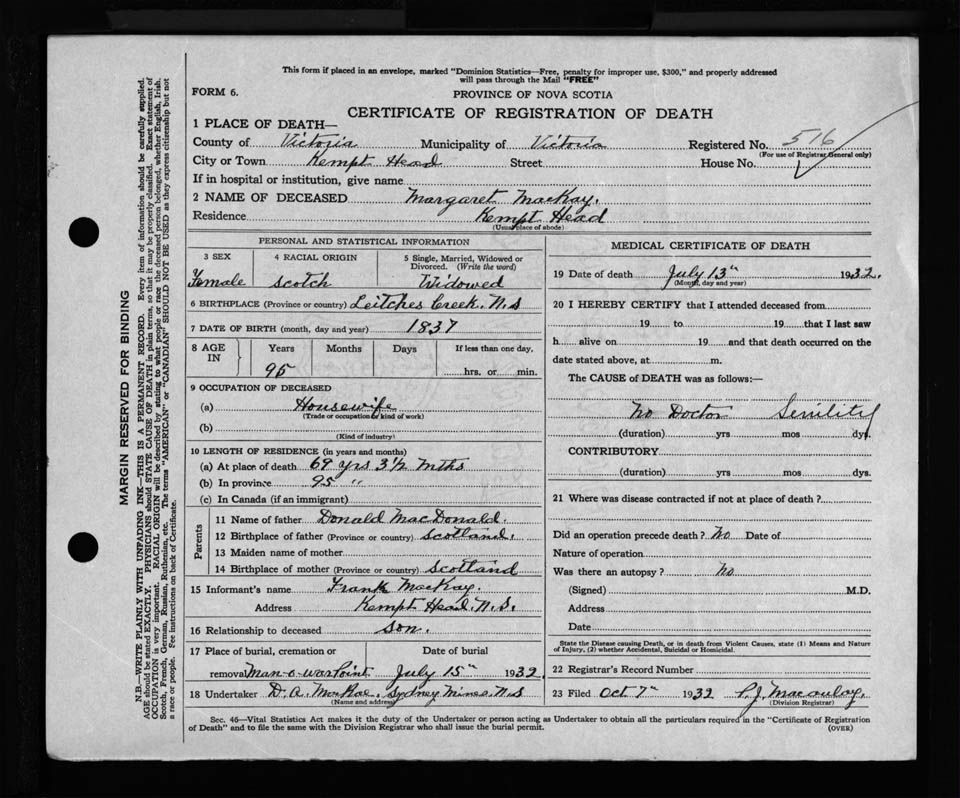 This form if placed in an envelope, marked "Dominion Statistics—Free, penalty for improper use, $300," and properly addressed
will pass through the Mail "FREE"
FORM 6.
PROVINCE OF NOVA SCOTIA
CERTIFICATE OF REGISTRATION OF DEATH
1 PLACE OF DEATH—
County of Victoria Municipality of Victoria Registered No. 516
(For use of Registrar General only)
City or Town Kempt Head Street House No.
If in hospital or institution, give name
2 NAME OF DECEASED Margaret MacKay.
Residence Kempt Head
(Usual place of abode)
PERSONAL AND STATISTICAL INFORMATION
3 SEX 4 RACIAL ORIGIN 5 Single, Married, Widowed or
Divorced. (Write the word)
Female Scotch Widowed
6 BIRTHPLACE (Province or country) Leitches Creek. N.S
7 DATE OF BIRTH (month, day and year) 1837
8 AGE IN Years Months Days If less than one day,
95 hrs. or min.
9 OCCUPATION OF DECEASED
(a) Housewife
(Trade or occupation or kind of work)
(b)
(Kind of industry)
10 LENGTH OF RESIDENCE (in years and months)
(a) At place of death 69 yrs 3½ mths
(b) In province 95 "
(c) In Canada (if an immigrant)
Parents
11 Name of father Donald MacDonald.
12 Birthplace of father (Province or country) Scotland.
13 Maiden name of mother
14 Birthplace of mother (Province or country) Scotland
15 Informant's name Frank MacKay.
Address Kempt Head. N.S.
16 Relationship to deceased son.
17 Place of burial, cremation or Date of burial
removal Man-o-war Point July 15th 1932
18 Undertaker D. A. MacRae. Sydney Mines N.S
(Name and address)
MEDICAL CERTIFICATE OF DEATH
19 Date of death July 13th 1932.
(Month, day and year)
20 I HEREBY CERTIFY that I attended deceased from
19 to 19 that I last saw
h alive on 19 and that death occurred on the
date stated above, at m.
The CAUSE of DEATH was as follows:—
No Doctor Senility
(duration) yrs mos dys.
CONTRIBUTORY
(duration) yrs mos dys.
21 Where was disease contracted if not at place of death?
Did an operation precede death? No Date of
Nature of operation
Was there an autopsy? No
(Signed) M.D.
Address
Date
State the Disease causing Death, or in death from Violent Causes, state (1) Means and Nature
of Injury, (2) whether Accidental, Suicidal or Homicidal.
22 Registrar's Record Number
23 Filed Oct 7th 1932 P.J. Macaulay.
(Division Registrar)
Sec. 46—Vital Statistics Act makes it the duty of the Undertaker or person acting as Undertaker to obtain all the particulars required in the "Certificate of Registration
of Death" and to file the same with the Division Registrar who shall issue the burial permit.
(OVER)
MARGIN RESERVED FOR BINDING
N.B.—WRITE PLAINLY WITH UNFADING INK—THIS IS A PERMANENT RECORD. Every item of information should be carefully supplied.
AGE should be stated EXACTLY. PHYSICIANS should STATE CAUSE OF DEATH in plain terms, so that it may be properly classified. Exact statement of
OCCUPATION is very important. RACIAL ORIGIN will be described by stating to what people or race the deceased person belonged, whether English, Irish,
Scotch, French, German, Russian, Ruthenian, etc. The terms "AMERICAN" or "CANADIAN" SHOULD NOT BE USED as they express citizenship but not
a race or people. See instructions on back of Certificate.